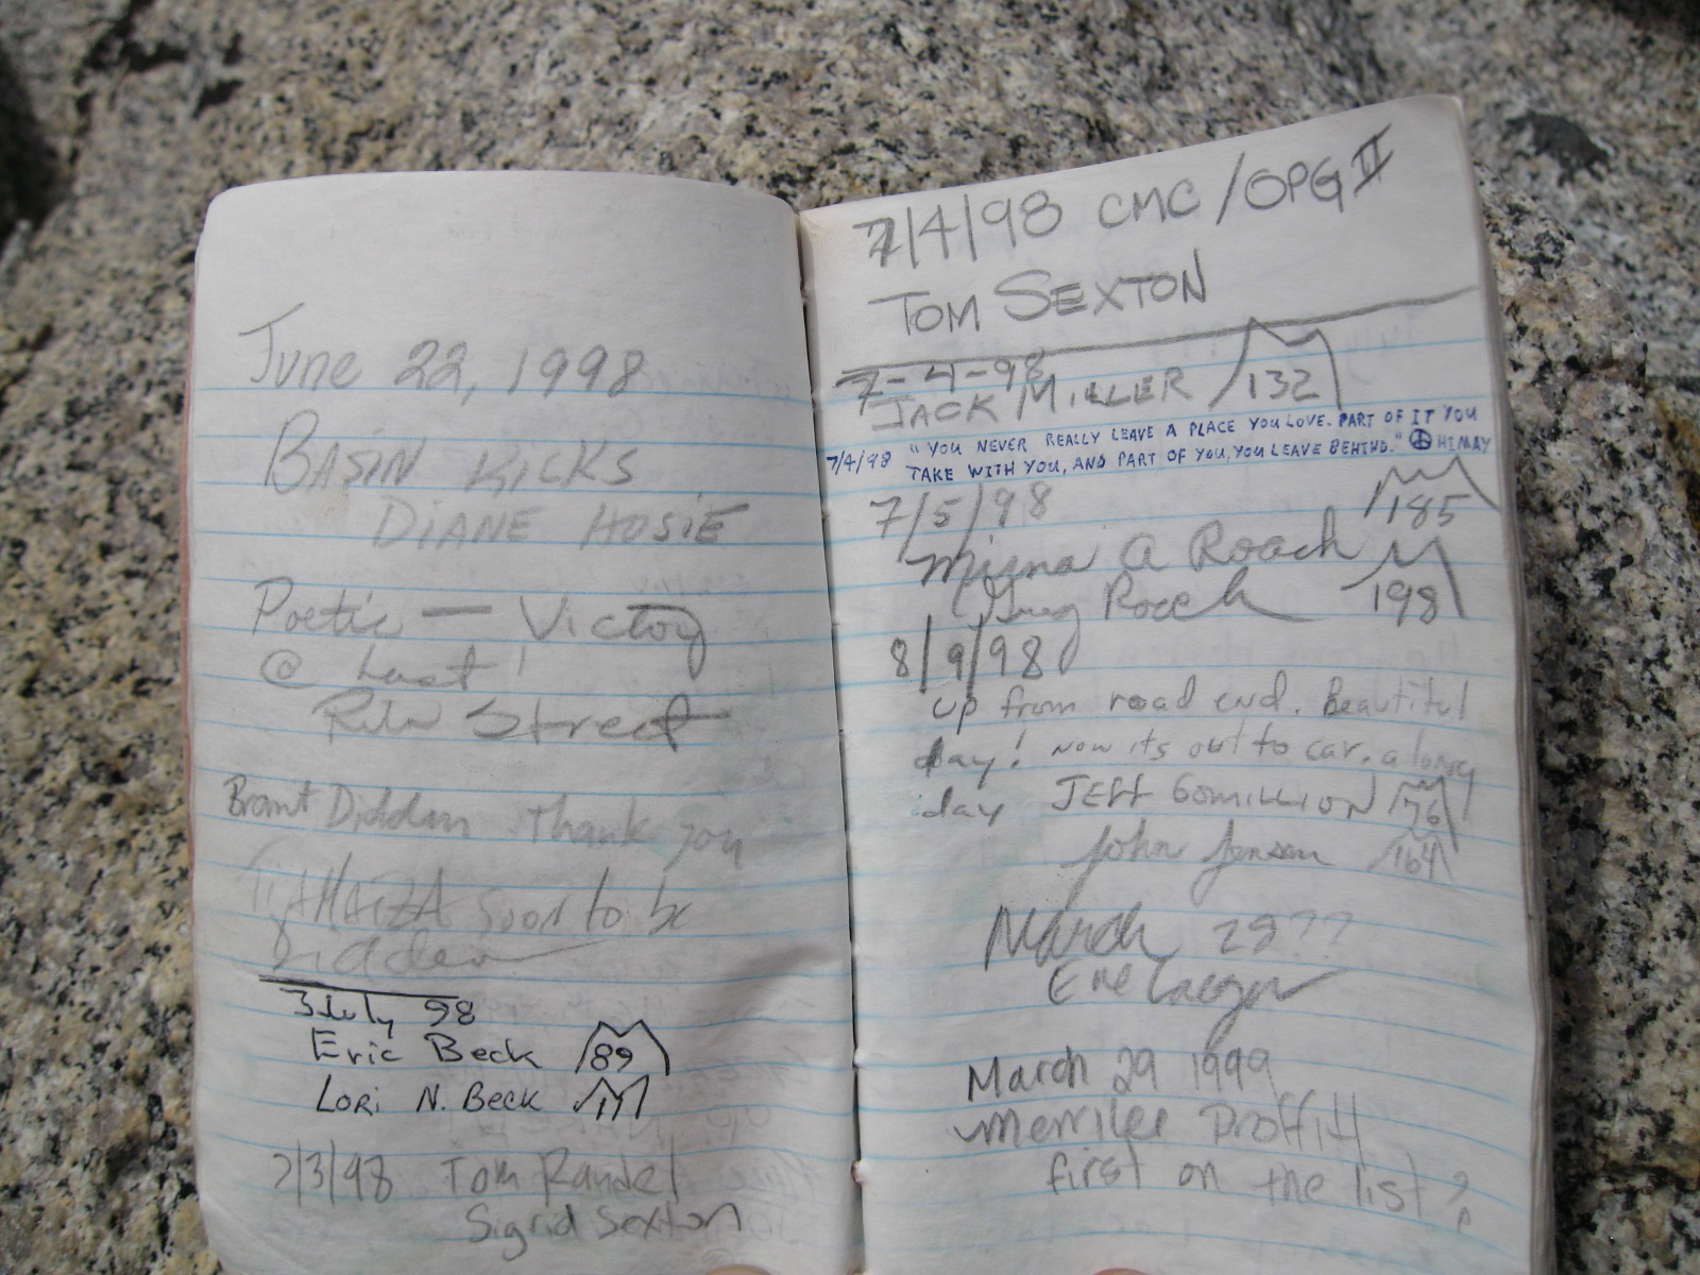 June 22, 1998
BASIN KICKS
DIANE HOSIE
Poetic — Victory
@ Last!
Street
Brant Diddam Thank you
soon to be
3 July 98
Eric Beck 89
LORI N. BECK
7/3/98 Tom Randel
Sigrid Sexton
7/4/98 CMC/OPG II
TOM SEXTON
7-4-98
JACK MILLER 132
7/4/98 "YOU NEVER REALLY LEAVE A PLACE YOU LOVE. PART OF IT YOU
TAKE WITH YOU, AND PART OF YOU, YOU LEAVE BEHIND."
7/5/98 185
A Roach
Roach 198
8/9/98
up from road end. Beautiful
day! Now its out to car. a long
day JEFF GOMILLION 176
John Jensen 164
March 29??
March 29 1999
Merrilee Proffitt
first on the list?